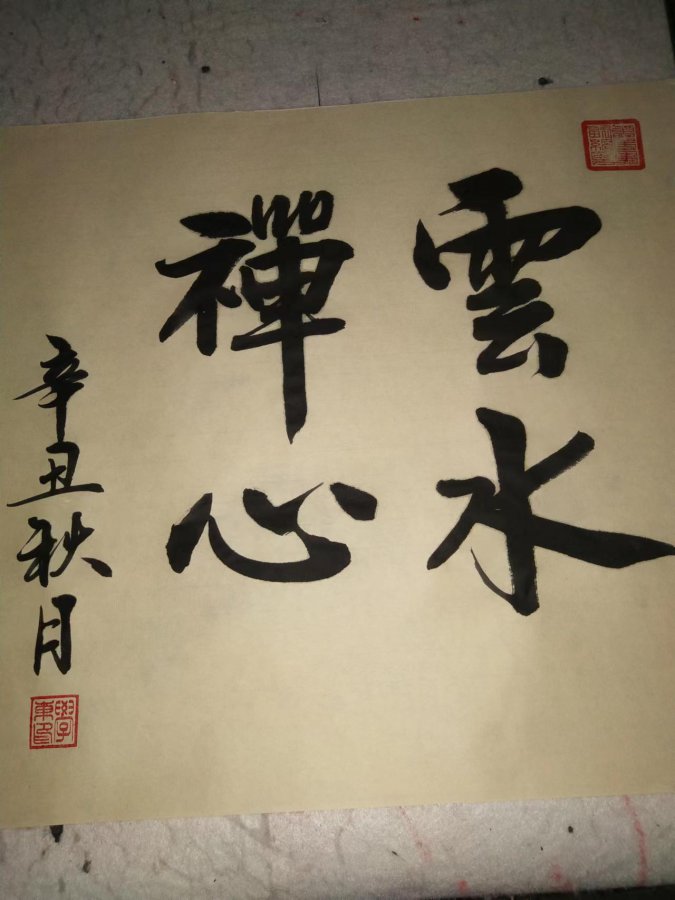 雲水
禪心
辛丑秋月